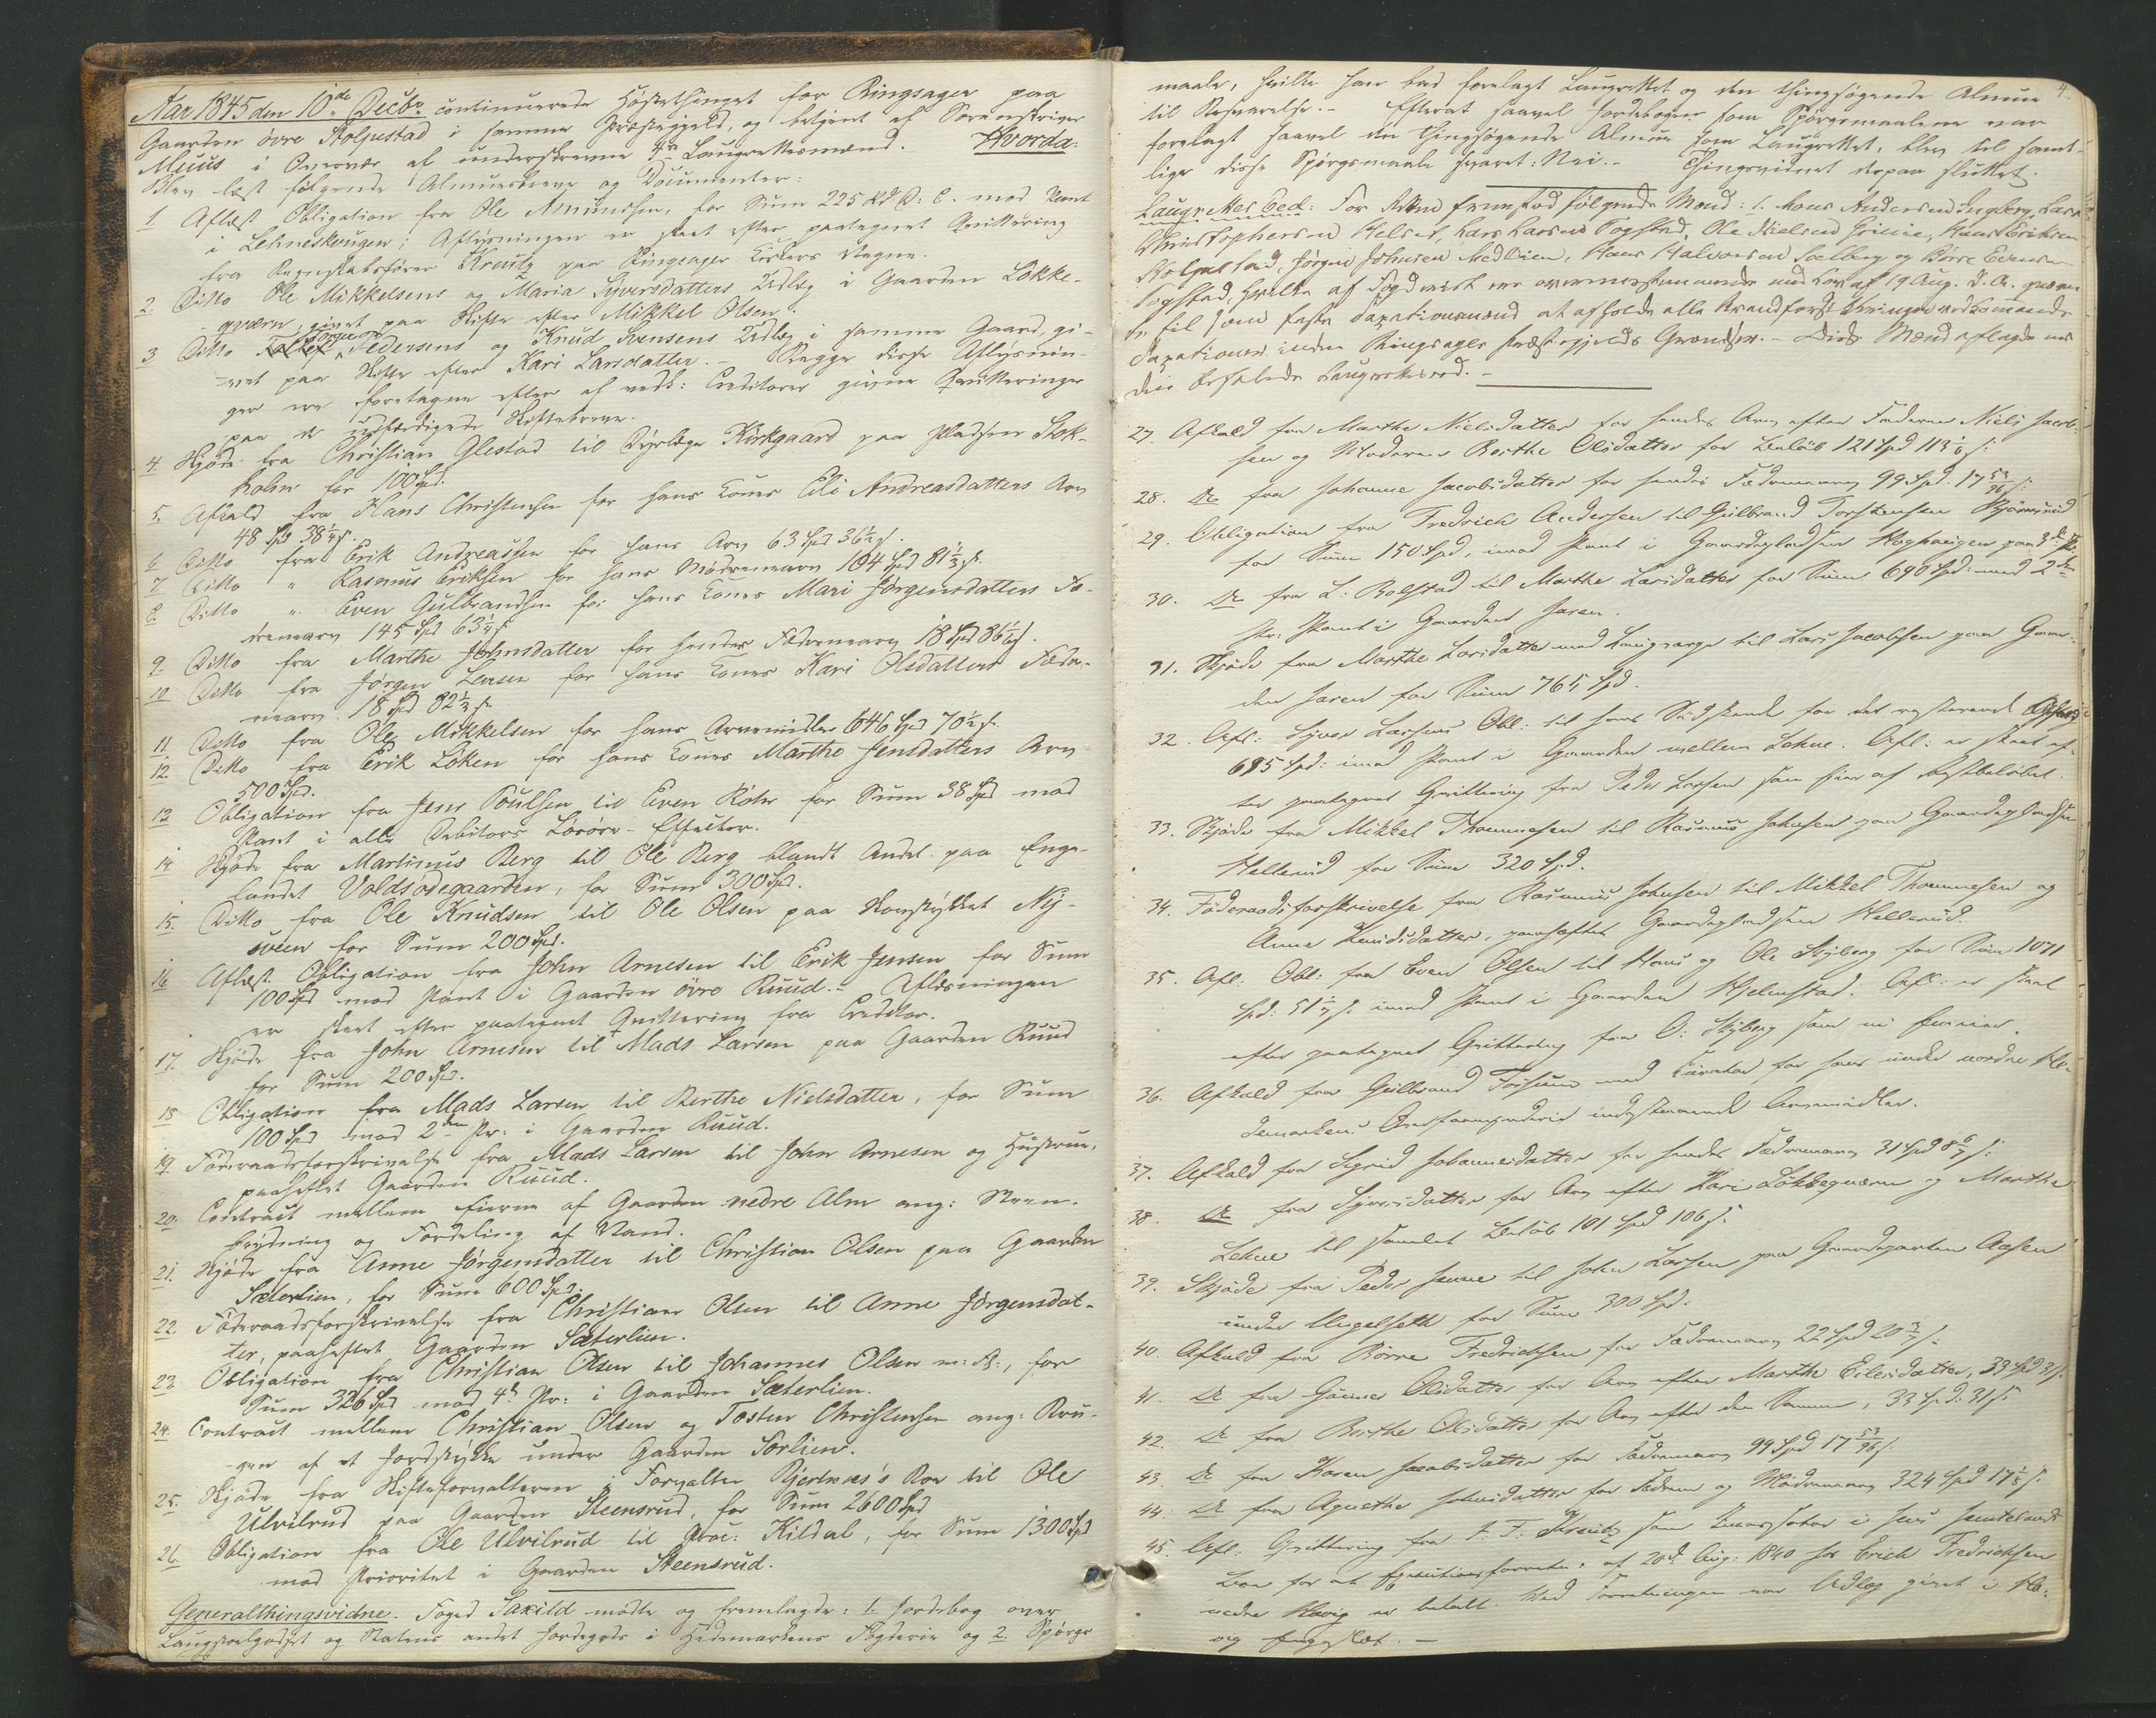 Aar 1845 den 10de Decbr continuerede Høstethinget for Ringsager paa
Gaarden övre Kolpestad i samme Præstegjeld, og betjent af Sorenskriver
Muus i Overvær af underskrevne 4re Laugrettesmænd. Hvorda:
Blev læst følgende Almuesbreve og Documenter:
1 Aflæst Obligation fra Ole Amundsen, for Sum 225 Rd D: C. mod Pant
i Lehneskougen; Aflysningen er skeet efter paategnet Qvittering
fra Regnskabsfører Kreutz paa Ringsager Kirkers Vegne.
2. Ditto Ole Mikkelsens og Maria Syversdatters Udlæg i Gaarden Løkke-
qværn, givet paa Skifte efter Mikkel Olsen.
3 Ditto Jørgen Pedersens og Knud Svensens Udlæg i samme Gaard, gi-
vet paa Skifte efter Kari Larsdatter. - Begge disse Aflysnin-
ger ere foretagne efter af vedk: Creditorer givne Qvitteringer
paa de udfærdigede Skiftebreve.
4. Skjøde fra Christian Glestad til Dyrlæge Kirkgaard paa Pladsen Stok-
holm for 100 Spd.
5. Afkald fra Hans Christensen for hans Kones Eli Andreasdatters Arv
48 Spd 38¼ s.
6 Ditto fra Erik Andreassen for hans Arv 63 Spd 36½ s.
7 Ditto " Rasmus Eriksen for hans Mødrenearv 104 Spd 81⅓ s.
8. Ditto " Even Gulbrandsen for hans Kones Mari Jørgensdatters Fæ-
drenearv 145 Spd 63¼ s
9. Ditto fra Marthe Johnsdatter for hendes Fædrenearv 18 Spd 86½ s.
10 Ditto fra Jørgen Jensen for hans Kones Kari Olsdatters Fædre-
nearv. 18 Spd 82⅓ s.
11. Ditto fra Ole Mikkelsen for hans Arvemidler 646 Spd 70½ s.
12. Ditto fra Erik Löken for hans Kones Marthe Jensdatters Arv
500 Spd.
13 Obligation fra Jens Poulsen til Even Röhr for Sum 38 Spd mod
Pant i alle Debitors Løsøre-Effecter.
14 Skjøde fra Martinus Berg til Ole Berg blandt Andet paa Enge-
landet Voldsødegaarden, for Sum 300 Spd.
15. Ditto fra Ole Knudsen til Ole Olsen paa Ny-
sveen for Sum 200 Spd.
16 Aflæst Obligation fra John Arnesen til Erik Jensen for Sum
100 Spd mod Pant i Gaarden övre Ruud. - Aflæsningen
er skeet efter paategnet Qvittering fra Creditor.
17. Skjøde fra John Arnesen til Mads Larsen paa Gaarden Ruud
for Sum 200 Spd.
18 Obligation fra Mads Larsen til Berthe Nielsdatter, for Sum
100 Spd mod 2den Pr: i Gaarden Ruud.
19. Føderaadsforskrivelse fra Mads Larsen til John Arnesen og Hustrue,
paaheftet Gaarden Ruud.
20. Contract mellem Eierne af Gaarden nedre Alm ang: Steen-
brydning og Fordeling af Vand.
21. Skjøde fra Anne Jørgensdatter til Christian Olsen paa Gaarden
Sæterlien, for Sum 600 Spd.
22. Føderaadsforskrivelse fra Christian Olsen til Anne Jørgensdat-
ter, paaheftet Gaarden Sæterlien.
23 Obligation fra Christian Olsen til Johannes Olsen m: fl:, for
Sum 326 Spd mod 4de Pr: i Gaarden Sæterlien.
24. Contract mellem Christian Olsen og Tosten Christensen ang: Bru-
gen af et Jordstykke under Gaarden Sorlien.
25. Skjøde fra Skifteforvalteren i Forvalter Bjerknes's Boe til Ole
Ulvilrud paa Gaarden Steensrud, for Sum 2600 Spd
26 Obligation fra Ole Ulvilrud til Proc: Kildal, for Sum 1300 Spd
mod Prioritet i Gaarden Steensrud.
Generalthingsvidne. Foged Saxild mødte og fremlagde: 1. Jordebog over
Laugstoelgodset og Statens andet Jordegods i Hedemarkens Fogderie og 2. Spörgs-
4.
maale, hvilke han bad forelagt Laugrettet og den thingsøgende Almue
til Besvarelse. - Efterat saavel Jordebogen som Spørgsmaalene var
forelagt saavel den thingsøgende Almue som Laugrettet, blev til samt-
lige disse Spørgsmaale svaret: Nei. - Thingsvidnet derpaa sluttet.
Laugrettes Eed: For Retten fremstod følgende Mænd: 1. Hans Andersen Ingberg, Lars
Christophersen Kelset, Lars Larsen Fogstad, Ole Nielsen, Hans Eriksen
Kolpestad, Jørgen Johnsen Medlien, Hans Halvorsen Solberg og Börre Evensen
Fogstad, hvilke af Fogden er overensstemmende med Lov af 19 Aug. d. A. opnævn-
te til som faste Taxationsmænd at afholde alle Brandforsikkringen vedkommende
Taxationer inden Ringsagers Præstegjelds Grændser. - Disse Mænd aflagde nu
den befalede Laugrettes Eed. -
27. Afkald fra Marthe Nielsdatter for hendes Arv efter Faderen Niels Jacob-
sen og Moderen Berthe Olsdatter for Beløb 121 Spd 113⅙ s:
28. Do fra Johanne Jacobsdatter for hendes Fædrenearv 99 Spd. 17 53/96 s:
29. Obligation fra Fredrich Andersen til Gulbrand Torstensen
for Sum 150 Spd, imod Pant i Gaardepladsen Haghaugen paa 3de Pr:
30. Do fra L: Rolstad til Marthe Larsdatter for Sum 690 Spd: med 2den
Pr: Pant i Gaarden Haren.
31. Skjöde fra Marthe Larsdatter med Laugværge til Lars Jacobsen paa Gaar-
den Haren for Sum 765 Spd.
32. Afl: Syver Larsens Obl: til hans Sødskende for det resterende
695 Spd: imod Pant i Gaarden mellem Lehne. Afl: er skeet ef-
ter paategnet Qvittering fra Peder Larsen som Eier af Restbeløbet.
33. Skjøde fra Mikkel Thommesen til Rasmus Johnsen paa Gaardepladsen
Hellerud for Sum 320 Spd.
34. Föderaadsforskrivelse fra Rasmus Johnsen til Mikkel Thommesen og
Anne Knudsdatter, paaheftet Gaardepladsen Hellerud.
35. Afl: Obl: fra Even Olsen til Hans og Ole Skyberg for Sum 1071
Spd: 51 s: imod Pant i Gaarden Hjelmstad. Afl: er skeet
efter paategnet Qvittering fra O: Skyberg som ene Eier.
36. Afkald fra Gulbrand Frisum med Curator for hans under nordre He-
demarkens Overformynderie indestaaende Arvemidler.
37. Afkald fra Sigrid Johannesdatter for hendes Fædrenearv 31 Spd 8 s:
38. Do fra Syversdatter for Arv efter Kari Løkkeqværn og Marthe
Lehne til samlet Beløb 101 Spd 106 s:
39. Skjøde fra Peder til John Larsen paa Gaardeparten Aasen
under Mugelseth for Sum 300 Spd:
40. Afkald fra Börre Fredrichsen for Fædrenearv 22 Spd 20 s:
41. Do fra Gunner Olsdatter for Arv efter Marthe Eilersdatter, 33 Spd 31 s.
42. Do fra Berthe Olsdatter for Arv efter den Samme, 33 Spd: 31 s:
43. Do fra Karen Jacobsdatter for Fædrenearv 99 Spd 17 53/96 s:
44. Do fra Agnethe Johnsdatter for Fædrene og Mødrenearv 324 Spd 17 s:
45. Afl: Qvittering fra A. T. Kreutz som i hans
Boe for at Executionsforretn: af 20de Aug: 1840 hos Erich Fredrichsen
nedre Havig er betalt. Ved Forretningen var Udlæg givet i